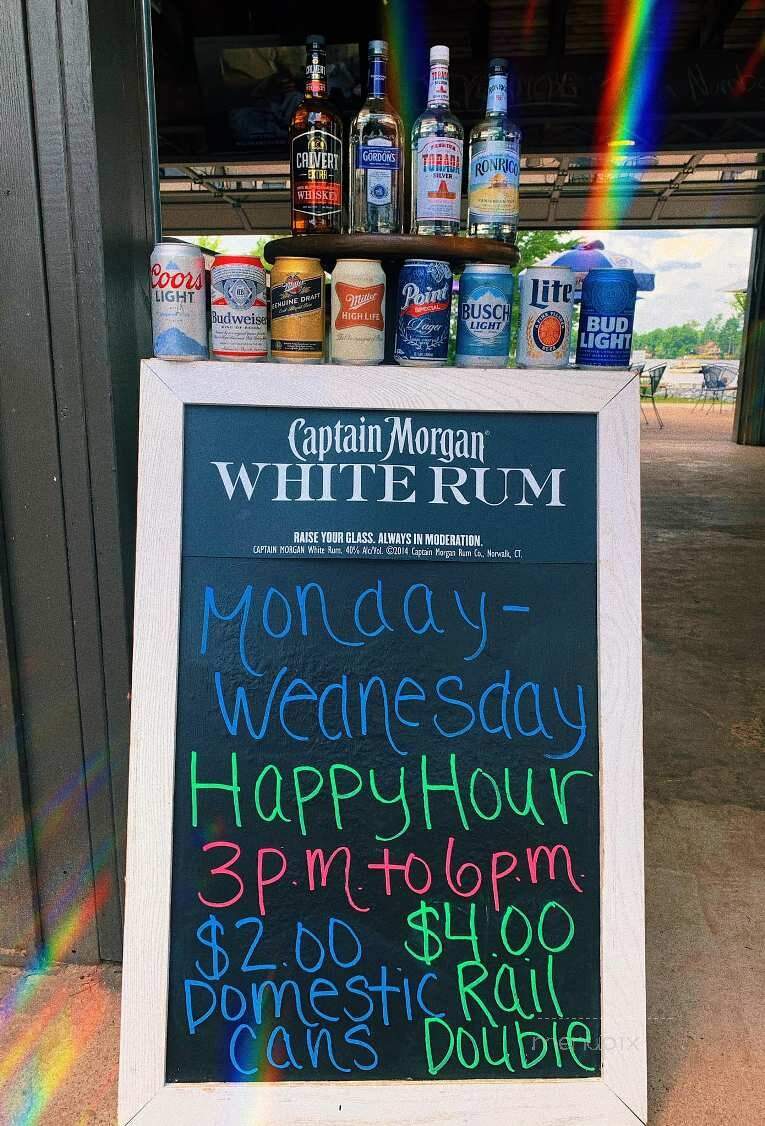 CALVERT
EXTRA
WHISKEY
GORDON'S
TORADA
SILVER
RONRICO
Coors
LIGHT
Budweiser
Miller
GENUINE DRAFT
Miller
HIGH LIFE
Point
SPECIAL
Lager
BUSCH
LIGHT
Lite
BUD
LIGHT
Captain Morgan
WHITE RUM
RAISE YOUR GLASS. ALWAYS IN MODERATION.
CAPTAIN MORGAN White Rum. 40% Alc/Vol. ©2014 Captain Morgan Rum Co., Norwalk, CT.
Monday-
Wednesday
Happy Hour
3p.m. to 6p.m.
$2.00
Domestic
Cans
$4.00
Rail
Double
menupix